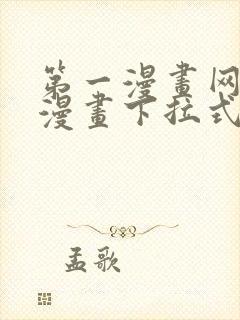 第一漫畫网
漫畫下拉式
孟歌